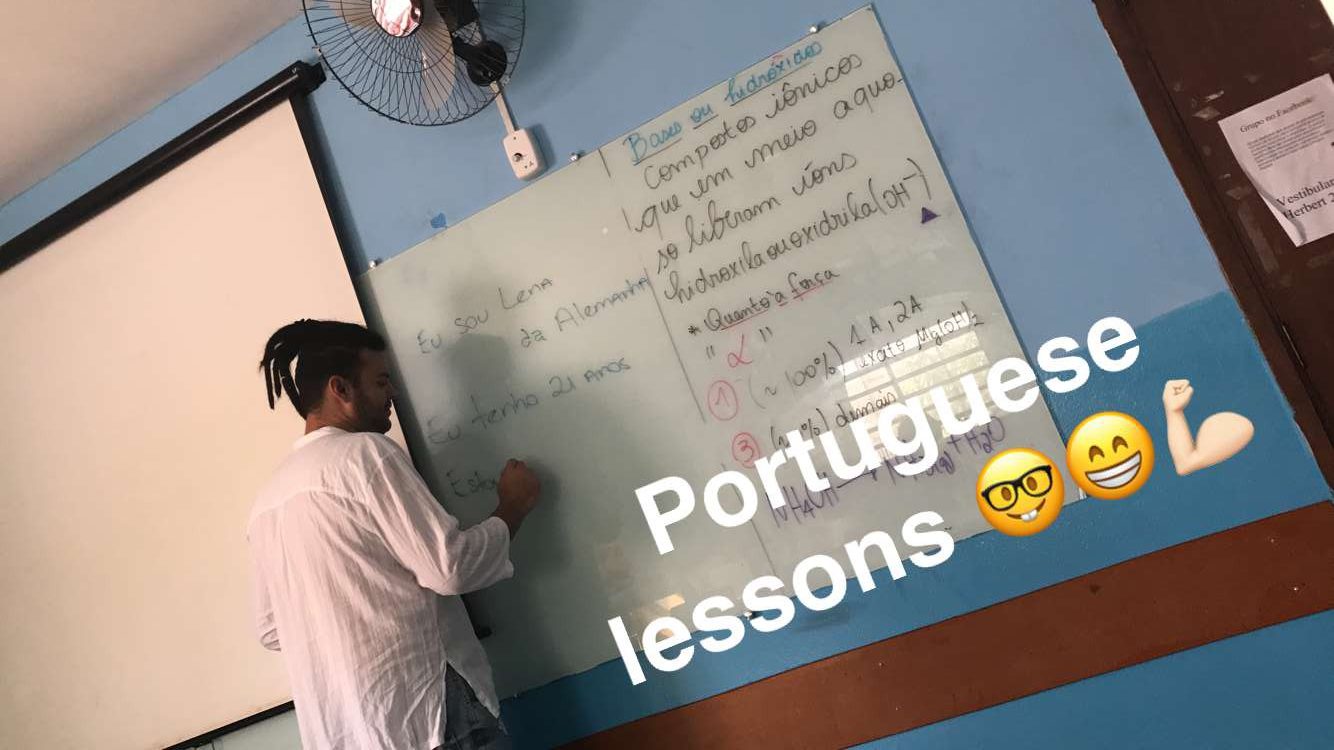 Eu sou Lena
da Alemanha
Eu tenho 21 anos
Bases ou hidróxidos
compostos iônicos
que em meio aquo-
so liberam íons
hidroxila ou oxidrila (OH⁻)
* "Quanto a força
" α "
① (~ 100%) 1A, 2A
exceto Mg(OH)₂
③ demais
NH₄OH
+ H₂O
Grupo no Facebook:
Vestibular
Herbert
Portuguese
lessons 🤓😁💪🏻